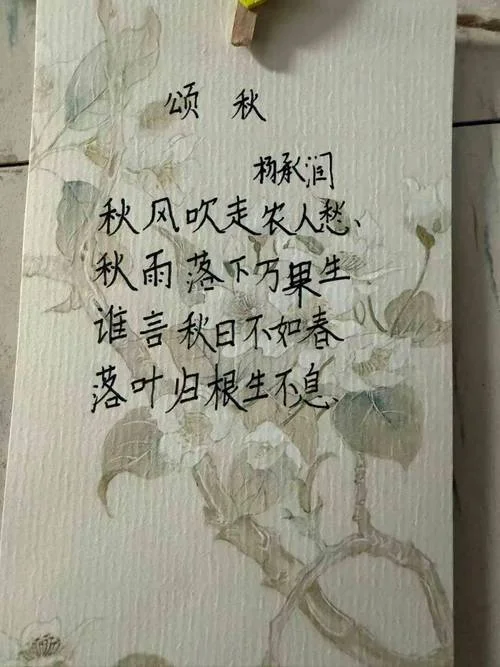 颂 秋
杨承润
秋风吹走农人愁、
秋雨落下万果生
谁言秋日不如春
落叶归根生不息、